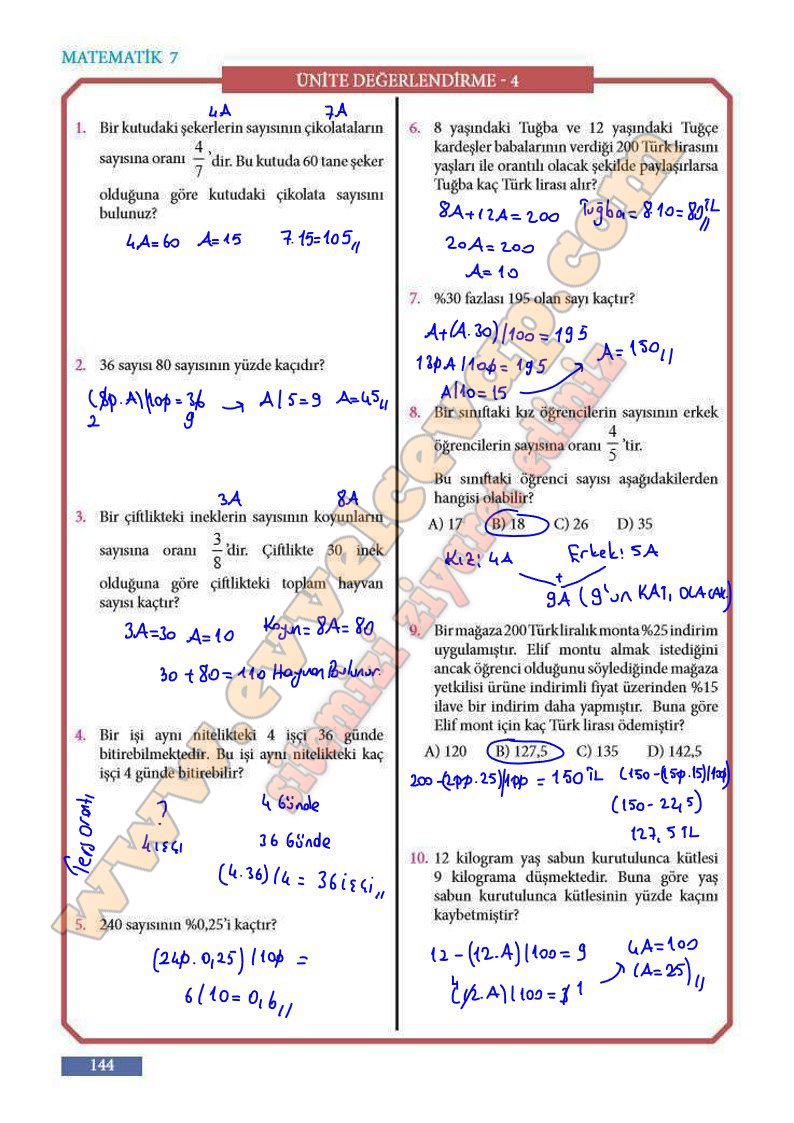 MATEMATİK 7
ÜNİTE DEĞERLENDİRME - 4
4A 7A
1. Bir kutudaki şekerlerin sayısının çikolataların
sayısına oranı 4/7 'dir. Bu kutuda 60 tane şeker
olduğuna göre kutudaki çikolata sayısını
bulunuz?
4A=60 A=15 7.15=105//
2. 36 sayısı 80 sayısının yüzde kaçıdır?
(80.A)/100=36 → A/5=9 A=45//
2 9
3A 8A
3. Bir çiftlikteki ineklerin sayısının koyunların
sayısına oranı 3/8 'dir. Çiftlikte 30 inek
olduğuna göre çiftlikteki toplam hayvan
sayısı kaçtır?
3A=30 A=10 Koyun=8A=80
30+80=110 Hayvan Bulunur.
4. Bir işi aynı nitelikteki 4 işçi 36 günde
bitirebilmektedir. Bu işi aynı nitelikteki kaç
işçi 4 günde bitirebilir?
Ters orantı
? 4 Günde
4 işçi 36 Günde
(4.36)/4=36 işçi//
5. 240 sayısının %0,25'i kaçtır?
(240.0,25)/100=
6/10=0,6//
6. 8 yaşındaki Tuğba ve 12 yaşındaki Tuğçe
kardeşler babalarının verdiği 200 Türk lirasını
yaşları ile orantılı olacak şekilde paylaşırlarsa
Tuğba kaç Türk lirası alır?
8A+12A=200 Tuğba=8.10=80TL//
20A=200
A=10
7. %30 fazlası 195 olan sayı kaçtır?
A+(A.30)/100=195
130A/100=195 A=150//
A/10=15
8. Bir sınıftaki kız öğrencilerin sayısının erkek
öğrencilerin sayısına oranı 4/5 'tir.
Bu sınıftaki öğrenci sayısı aşağıdakilerden
hangisi olabilir?
A) 17 B) 18 C) 26 D) 35
Kız: 4A Erkek: 5A
+
9A (9'un KATI OLACAK)
9. Bir mağaza 200 Türk liralık monta %25 indirim
uygulamıştır. Elif montu almak istediğini
ancak öğrenci olduğunu söylediğinde mağaza
yetkilisi ürüne indirimli fiyat üzerinden %15
ilave bir indirim daha yapmıştır. Buna göre
Elif mont için kaç Türk lirası ödemiştir?
A) 120 B) 127,5 C) 135 D) 142,5
200-(200.25)/100=150TL (150-(150.15)/100)
(150-22,5)
127,5TL
10. 12 kilogram yaş sabun kurutulunca kütlesi
9 kilograma düşmektedir. Buna göre yaş
sabun kurutulunca kütlesinin yüzde kaçını
kaybetmiştir?
12-(12.A)/100=9 4A=100
4 (12.A)/100=3 1 → (A=25)//
www.evvelcevap.com
sitemizi ziyaret ediniz
144